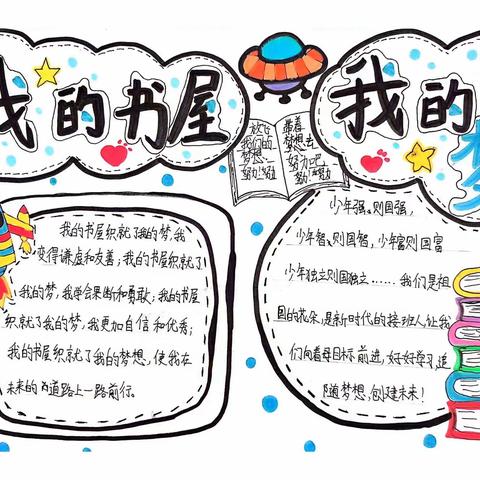 我的书屋
我的梦
放好
我们的
梦想
努力
带着
梦想去
努力吧
我的书屋织就了我的梦,我
变得谦虚和友善;我的书屋织就了
我的梦,我学会果断和勇敢;我的书屋
织就了我的梦,我更加自信和优秀;
我的书屋织就了我的梦想,使我在
未来的道路上一路前行。
少年强,则国强,
少年智,则国智,少年富则国富
少年独立则国独立……我们是祖
国的花朵,是新时代的接班人,让我
们向着每目标前进,好好学习,追
随梦想,创建未来!